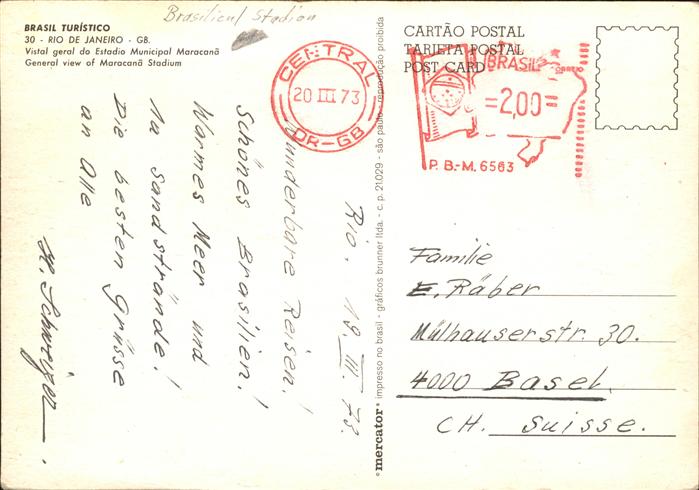 Brasilicul Stadion
BRASIL TURÍSTICO
30 - RIO DE JANEIRO - GB.
Vistal geral do Estadio Municipal Maracanã
General view of Maracanã Stadium
CENTRAL
20 III 73
DR-GB
CARTÃO POSTAL
TARJETA POSTAL
POST CARD
BRASIL
CORREIO
=2,00=
P.B.-M. 6563
Rio. 18. III. 73.
Wunderbare Reisen!
Schönes Brasilien!
Warmes Meer und
1a Sandstrände!
Die besten Grüsse
an Alle
H. Schweizer
mercator® impresso no brasil - gráficos brunner ltda. - c. p. 21.029 - são paulo - reprodução proibida
Familie
E. Räber
Mülhauserstr. 30.
4000 Basel.
CH. Suisse.